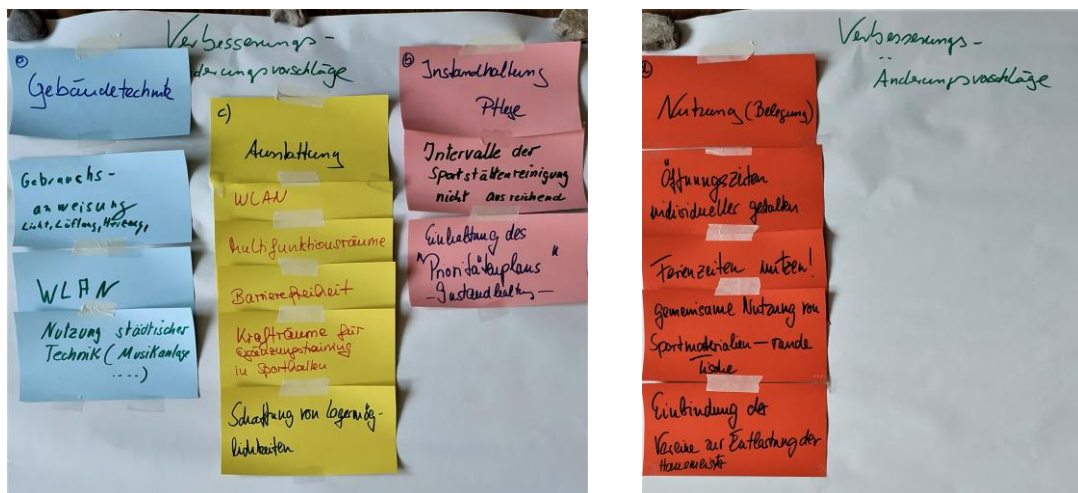 Verbesserungs-
derungsvorschläge
Gebäudetechnik
Gebrauchs-
anweisung
Licht, Lüftung, Heizung,
WLAN
Nutzung städtischer
Technik (Musikanlage
....)
c)
Ausstattung
WLAN
Multifunktionsräume
Barrierefreiheit
Krafträume für
Ergänzungstraining
in Sporthallen
Schaffung von Lagermög-
lichkeiten
b)
Instandhaltung
Pflege
Intervalle der
Sportstättenreinigung
nicht ausreichend
Einhaltung des
"Prioritätenplans"
-Instandhaltung-
Verbesserungs-
Änderungsvorschläge
d)
Nutzung (Belegung)
Öffnungszeiten
individueller gestalten
Ferienzeiten nutzen!
gemeinsame Nutzung von
Sportmaterialien - runde
Tische
Einbindung der
Vereine zur Entlastung der
Hausmeister